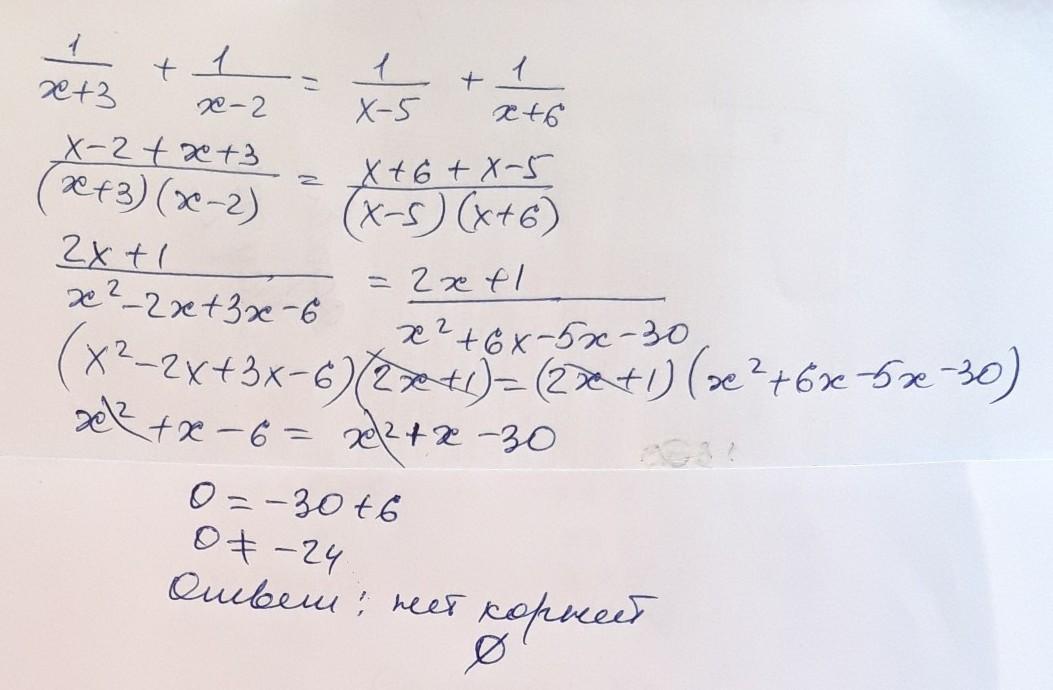 1/(x+3) + 1/(x-2) = 1/(x-5) + 1/(x+6)
(x-2+x+3)/((x+3)(x-2)) = (x+6+x-5)/((x-5)(x+6))
(2x+1)/(x²-2x+3x-6) = (2x+1)/(x²+6x-5x-30)
(x²-2x+3x-6)(2x+1)=(2x+1)(x²+6x-5x-30)
x²+x-6= x²+x-30
0=-30+6
0≠-24
Ответ: нет корней
∅